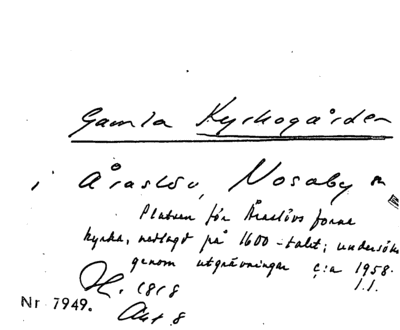 Gamla Kyrkogården
i Åraslöv, Nosaby sn
Platsen för Åraslövs forna
kyrka, nedlagd på 1600-talet; undersökt
genom utgrävningar c:a 1958.
1818
Nr 7949.
Akt 8